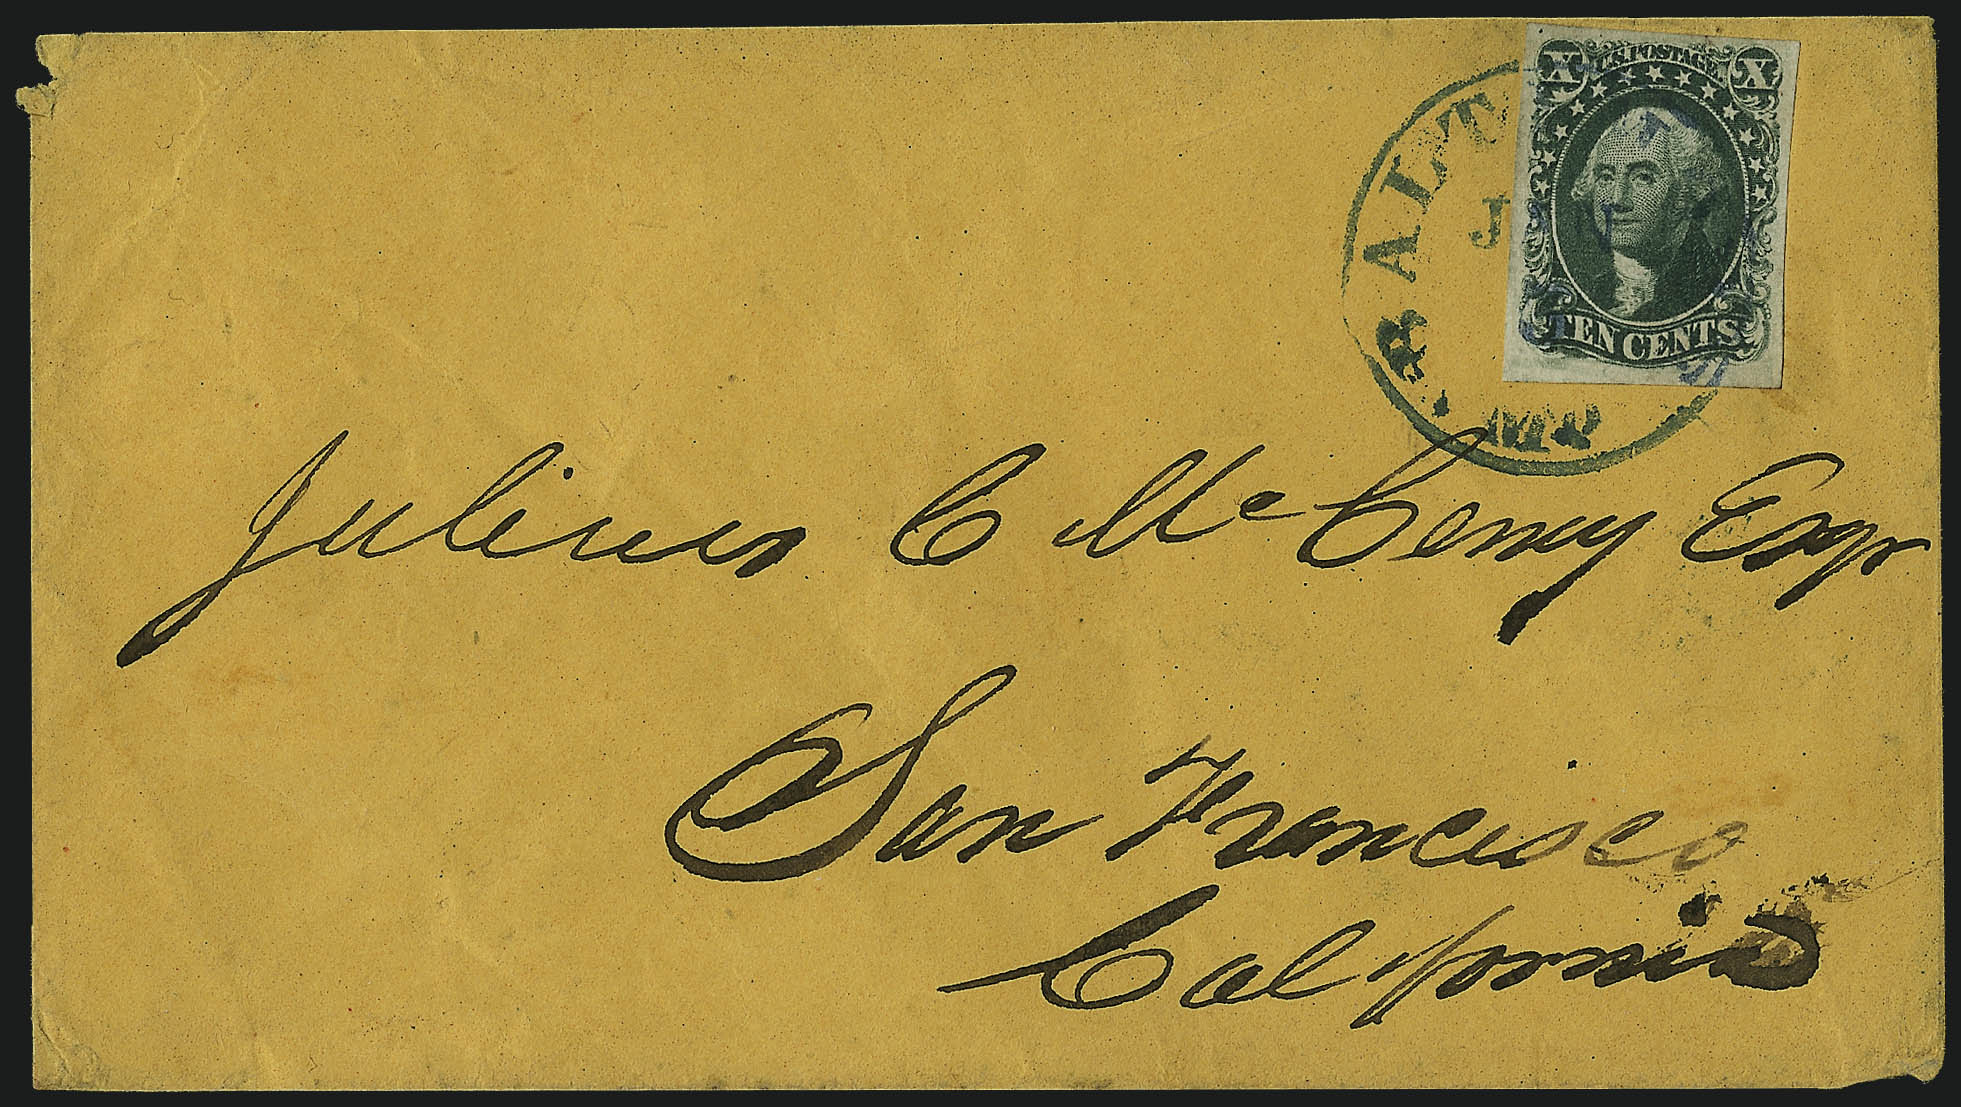 X U.S. POSTAGE. X
TEN CENTS
BALT
J
Md
Julius C McCeney Esqr
San Francisco
California